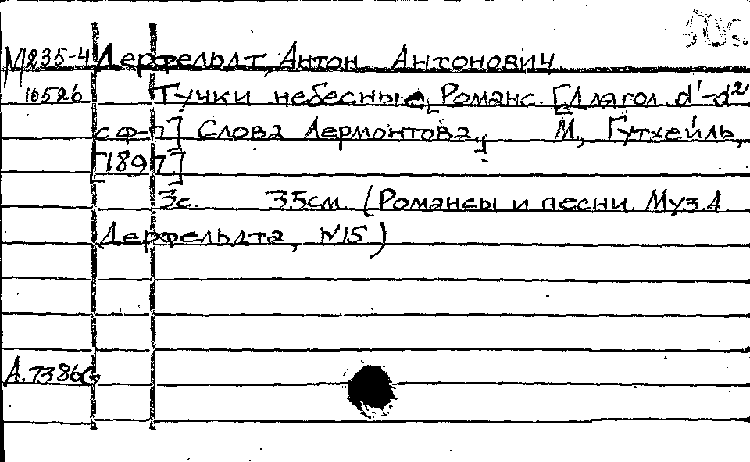 М235-4 Дерфельдт, Антон Антонович
10526 Тучки небесные. Романс. [Для гол. d¹-d²
с ф-п] Слова Лермонтова. М., Гутхейль,
[1897]
3с. 35см. (Романсы и песни. Муз. А.
Дерфельдта, №15)
А.7386